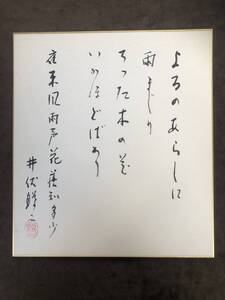 よるのあらしに
雨まじり
ちつた木の花
いかほどばかり
夜来風雨声 花落知多少
井伏鱒二